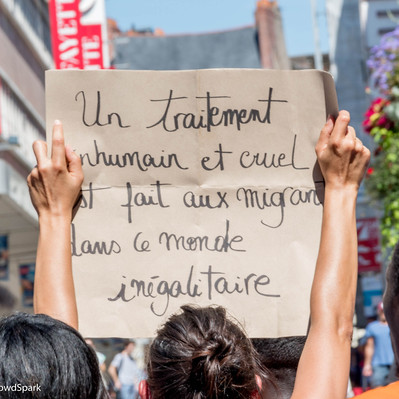 FAYETTE
Un traitement
inhumain et cruel
est fait aux migran
dans ce monde
inégalitaire
owdSpark